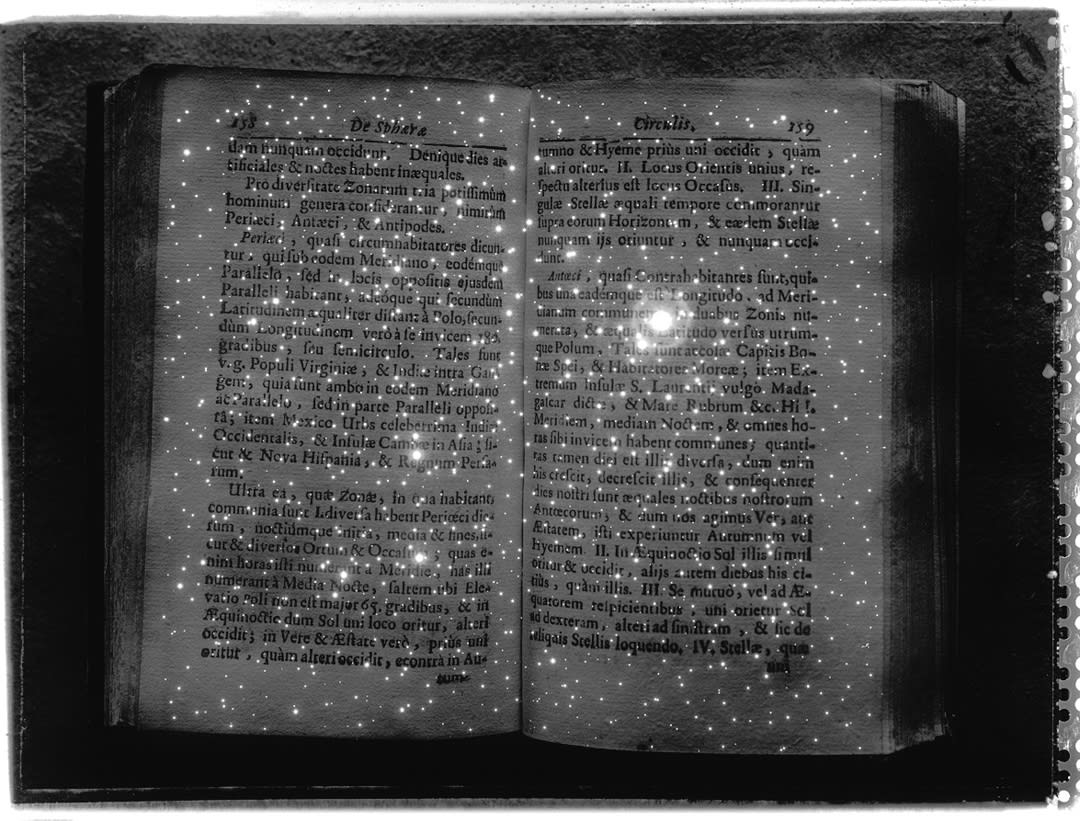 158 De Sphæræ
dam nunquam occidunt. Denique dies ar-
tificiales & noctes habent inæquales.
Pro diversitate Zonarum tria potissimùm
hominum genera considerantur, nimirùm
Periæci, Antæci, & Antipodes.
Periæci, quasi circumhabitatores dicun-
tur, qui sub eodem Meridiano, eodémque
Parallelo, sed in locis oppositis ejusdem
Paralleli habitant, adeòque qui secundùm
Latitudinem æqualiter distant à Polo, secun-
dùm Longitudinem verò à se invicem 180.
gradibus, seu semicirculo. Tales sunt
v. g. Populi Virginiæ; & Indiæ intra Gan-
gem, quia sunt ambo in eodem Meridiano
ac Parallelo, sed in parte Paralleli opposi-
tâ; item Mexico Urbs celeberrima Indiæ
Occidentalis, & Insulæ in Asia; si-
cut & Nova Hispania, & Regnum Persa-
rum.
Ultra ea, quæ Zonæ, in qua habitant,
communia sunt diversa habent Periæci die-
rum, noctiúmque initia, media & fines, si-
cut & diversos Ortum & Occasum; quas e-
nim horas isti numerant à Meridie, has illi
numerant à Media Nocte, saltem ubi Ele-
vatio Poli non est major 65. gradibus, & in
Æquinoctio dum Sol uni loco oritur, alteri
occidit; in Vere & Æstate verò, priùs uni
oritur, quàm alteri occidit, econtrà in Au-
tumno
Circulis. 159
tumno & Hyeme priùs uni occidit, quàm
alteri oritur. II. Locus Orientis unius, re-
spectu alterius est locus Occasûs. III. Sin-
gulæ Stellæ æquali tempore commorantur
supra eorum Horizontem, & eædem Stellæ
nunquam ijs oriuntur, & nunquam occi-
dunt.
Antæci, quasi Contrahabitantes sunt, qui-
bus una eadémque est Longitudo, ad Meri-
dianum communem in duabus Zonis nu-
merata, & æqualis Latitudo versùs utrum-
que Polum, Tales sunt accolæ Capitis Bo-
næ Spei, & Habitatores Moreæ; item Ex-
tremum Insulæ S. Laurentij vulgò Mada-
gascar dictæ, & Mare Rubrum &c. Hi I.
Meridiem, mediam Noctem, & omnes ho-
ras sibi invicem habent communes; quanti-
tas tamen diei est illis diversa, dum enim
his crescit, decrescit illis, & consequenter
dies nostri sunt æquales noctibus nostrorum
Antæcorum; & dum nos agimus Ver, aut
Æstatem, isti experiuntur Autumnum vel
Hyemem. II. In Æquinoctio Sol illis simul
oritur & occidit, alijs autem diebus his ci-
tiùs, quàm illis. III. Se mutuò, vel ad Æ-
quatorem respicientibus, uni orietur Sol
ad dexteram, alteri ad sinistram, & sic de
reliquis Stellis loquendo. IV. Stellæ, quæ
uni